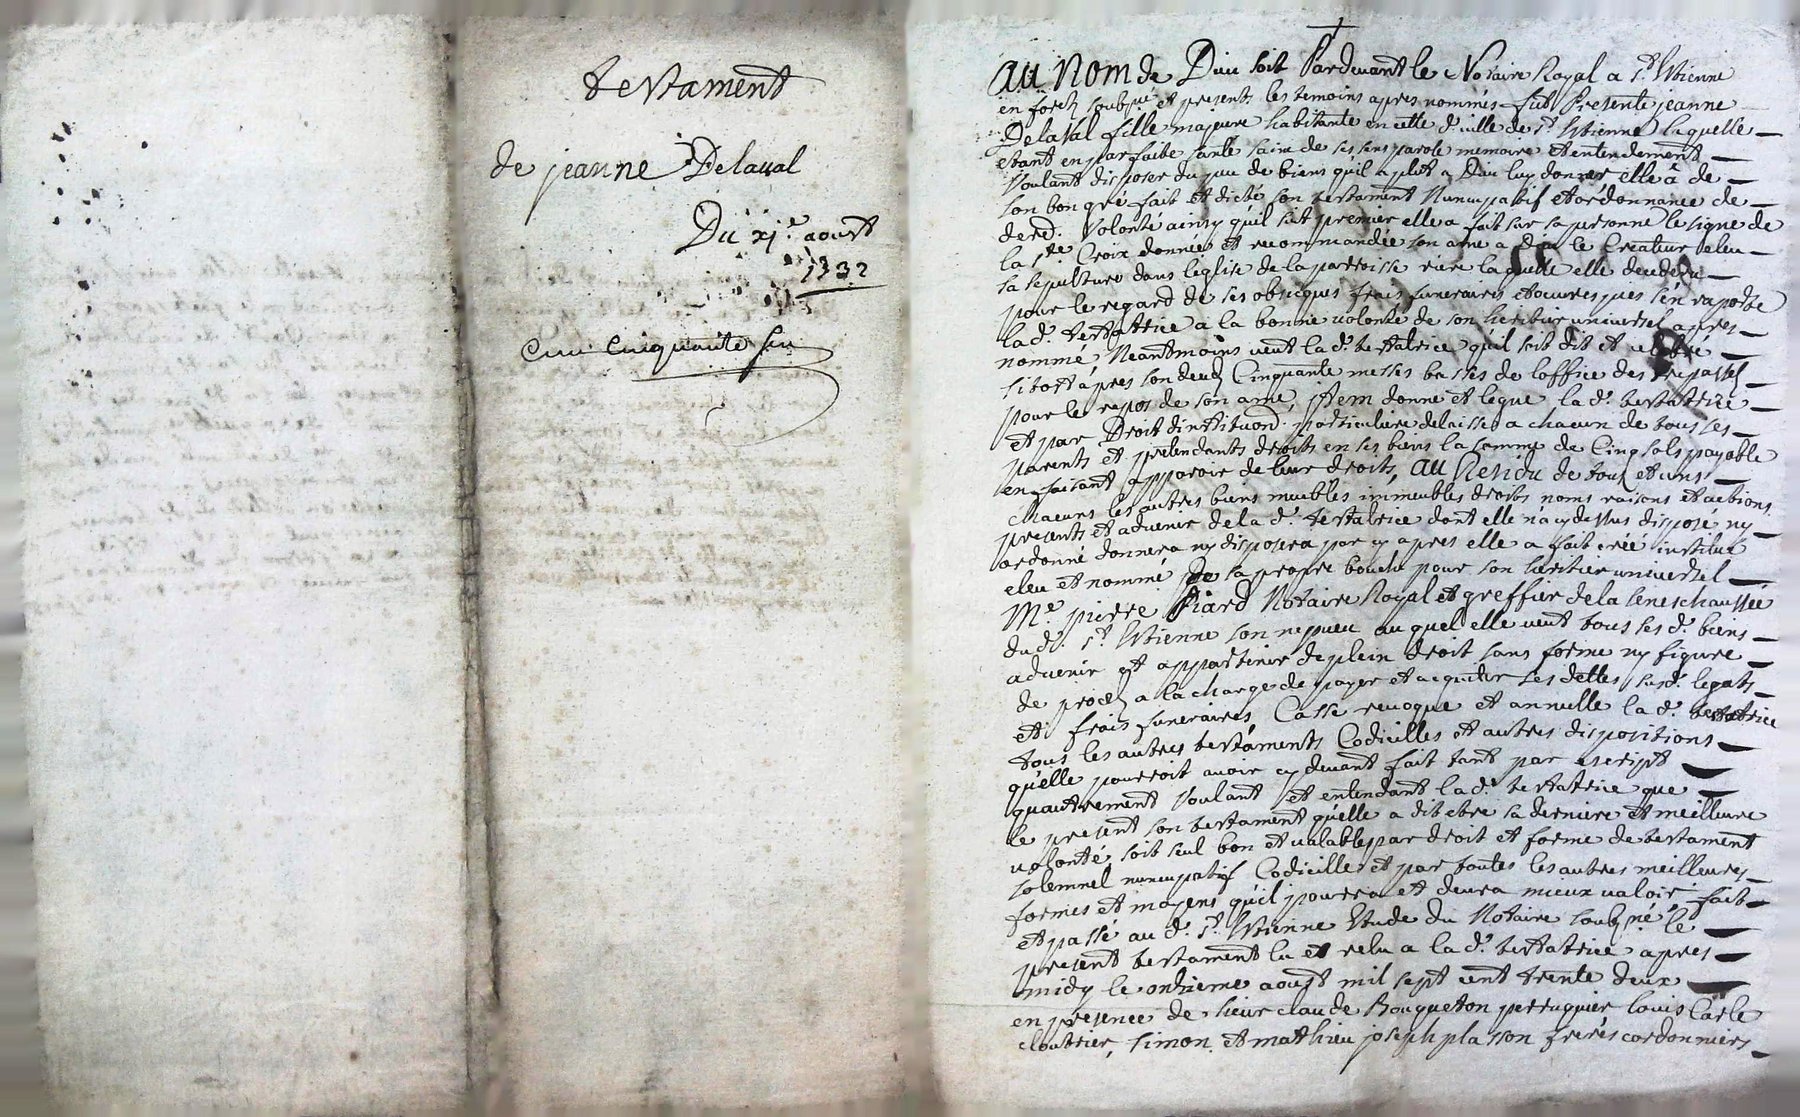 testament
de jeanne Delaval
Du xj.e aoust
1732
Cinquante
au Nom de Dieu soit Pardevant le Notaire Royal a St. Etienne
en forest soubzné et presents les temoins apres nommés fut Presente jeanne
Delaval fille majeure habitante en cette d. ville de St. Etienne laquelle
etant en parfaite santé saine de ses sens parole memoire et entendement
Voulant disposer du peu de biens qu'il a plut a Dieu luy donner elle â de
son bon gré fait et dicté son testament Nuncupatif et ordonnance de
dere. Volonté ainsy quil suit premier elle a fait sur sa personne le signe de
la Ste Croix donnée et recommandée son ame a dieu le Createur eleu
sa sepulture dans leglise de la parroisse riere laquelle elle decedera
pour le regard de ses obseques frais funeraires et oeuvres pies s'en raporte
la d. testatrice a la bonne volonté de son heritier universel apres
nommé Neantmoins veut la d. testatrice quil soit dit et celebré
sitost apres son decez Cinquante messes basses de loffice des trepassez
pour le repos de son ame, jtem donne et legue la d. testatrice
et par Droit dinstituon. particuliere delaisse a chacun de tous ses
parents et pretendants droits en ses biens la somme de Cinq sols payable
en faisant apparoir de leur droits, au Residu de tous et uns
chacuns les autres biens meubles immeubles droits noms raisons et actions
presents et advenir de la d. testatrice dont elle n'a cy dessus disposé ny
ordonné donnera ny disposera par cy apres elle a fait créé institué
eleu et nommé de sa propre bouche pour son heritier universel
Me. pierre Piard Notaire Royal et greffier de la seneschaussée
dud. St. Etienne son nepveu auquel elle veut tous ses d. biens
advenir et appartenir de plein droit sans forme ny figure
de procez a la charge de payer et acquitter ses dettes susd. legats
et frais funeraires, Casse revoque et annulle la d. testatrice
tous les autres testaments Codicilles et autres dispositions
qu'elle pourroit avoir cy devant fait tant par escript
quautrement Voulant et entendant la d. testatrice que
le present son testament qu'elle a dit etre sa derniere et meilleure
volonté soit seul bon et valable par droit et forme de testament
solemnel nuncupatif Codicille et par toutes les autres meilleures
formes et moyens qu'il pourra et devra mieux valoir, fait
et passé au d. St. Etienne Etude du Notaire soubzné le
present testament lu et relu a la d. testatrice apres
midy le onzieme aoust mil sept cent trente deux
en presence de sieur claude Bouqueton perruquier louis Carle
cloutrier, simon et mathieu joseph plasson freres cordonniers